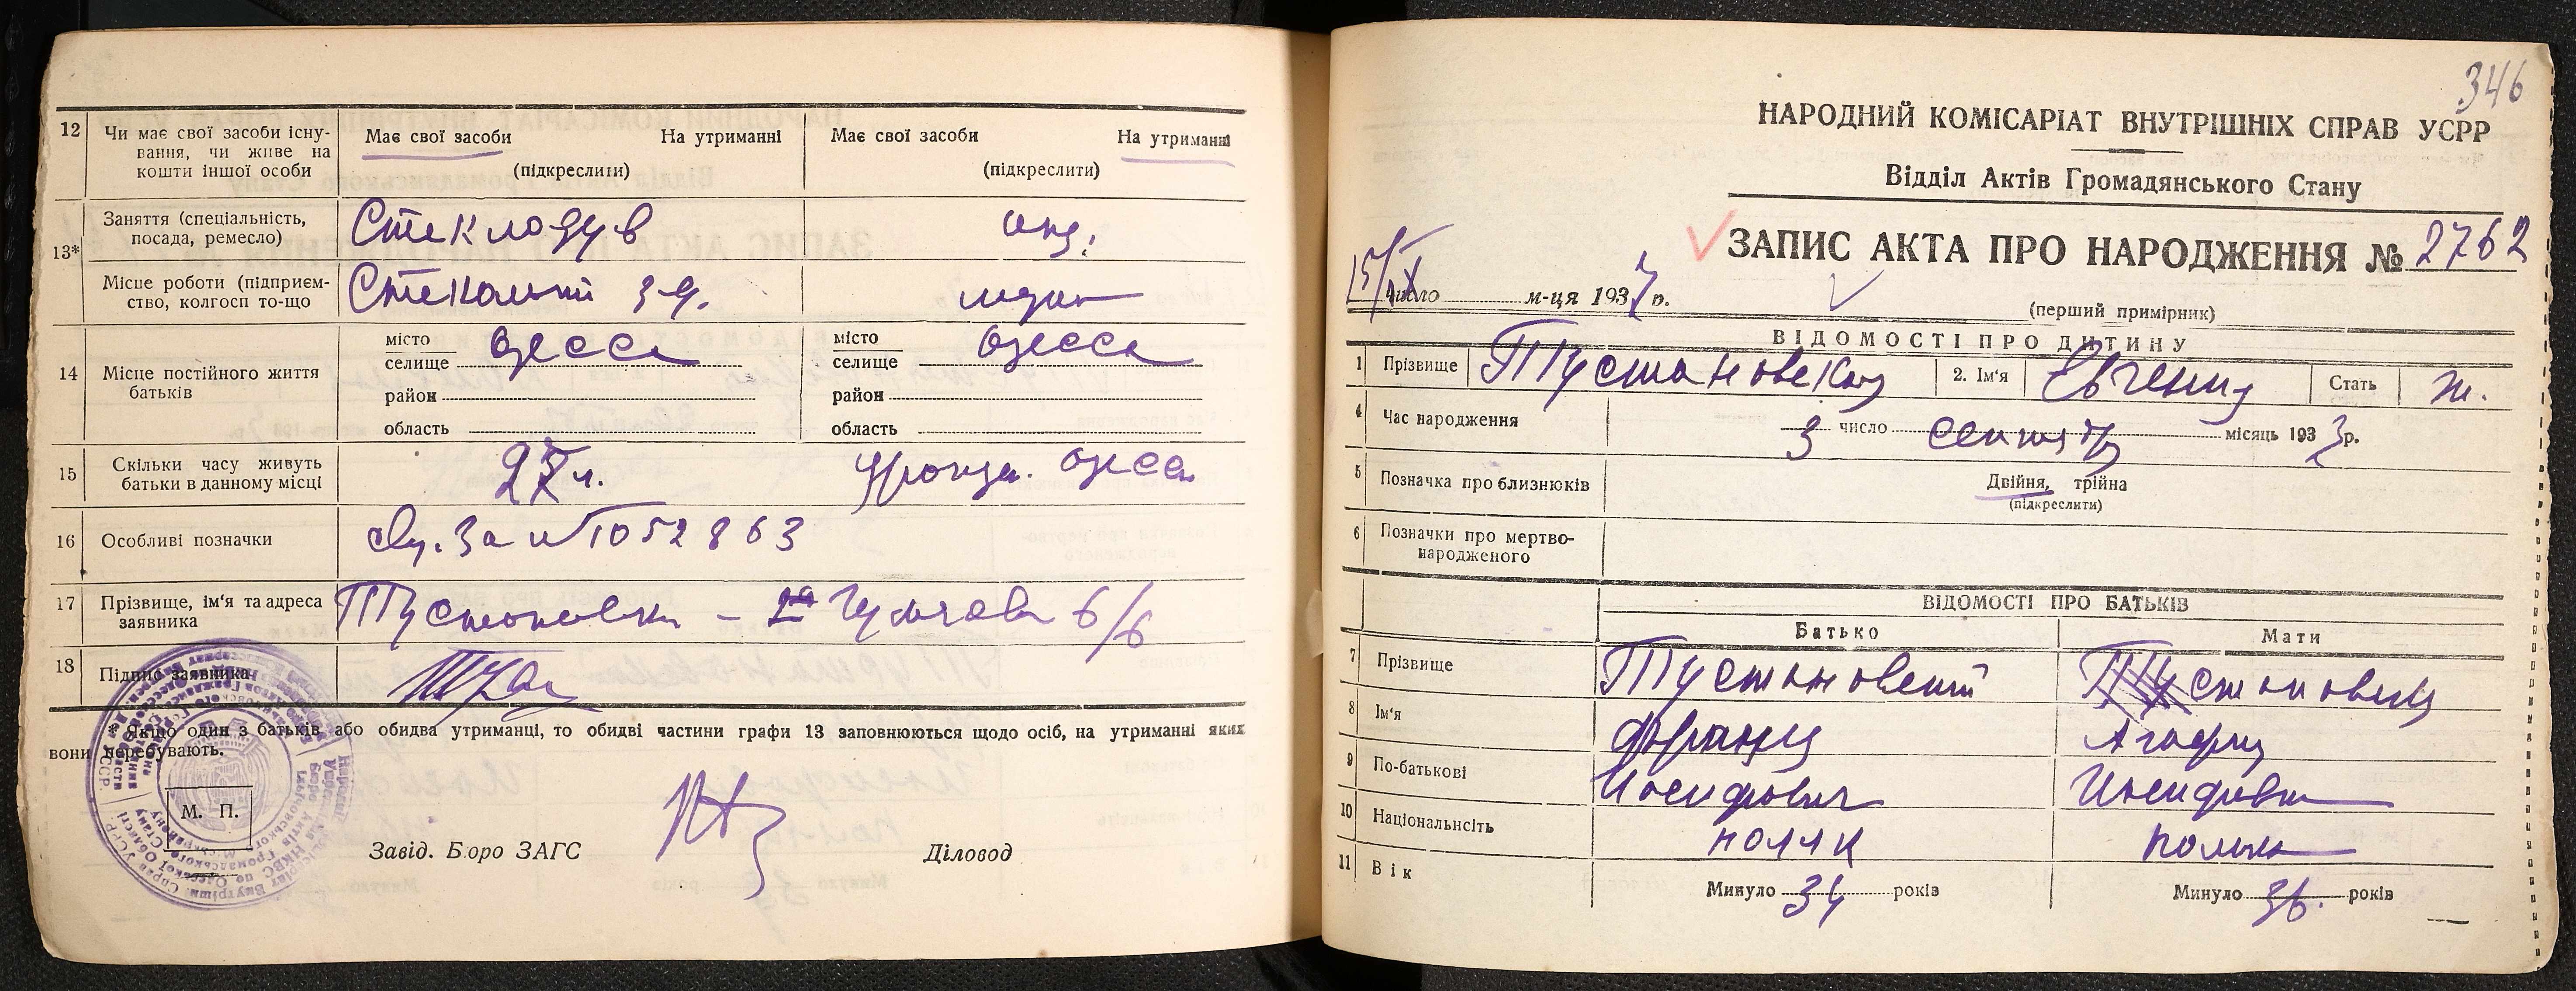 12 Чи має свої засоби існу-
вання, чи живе на
кошти іншої особи
Має свої засоби На утриманні
(підкреслити)
Має свої засоби На утриманні
(підкреслити)
13*
Заняття (спеціальність,
посада, ремесло)
Стеклодув
Місце роботи (підприєм-
ство, колгосп то-що
Стекольний з-д.
14 Місце постійного життя
батьків
місто
селище Одесса
район
область
місто
селище Одесса
район
область
15 Скільки часу живуть
батьки в данному місці
27 л.
Одесса
16 Особливі позначки
1052863
17 Прізвище, ім'я та адреса
заявника
6/6
18 Підпис заявника
Якщо один з батьків або обидва утриманці, то обидві частини графи 13 заповнюються щодо осіб, на утриманні яких
вони перебувають.
М. П.
Завід. Бюро ЗАГС Діловод
346
НАРОДНИЙ КОМІСАРІАТ ВНУТРІШНІХ СПРАВ УСРР
Відділ Актів Громадянського Стану
ЗАПИС АКТА ПРО НАРОДЖЕННЯ № 2762
15/IX число м-ця 1937 р.
(перший примірник)
ВІДОМОСТІ ПРО ДИТИНУ
1 Прізвище Тустановская 2. Ім'я Євгения Стать ж.
4 Час народження 3 число сентяб місяць 1937 р.
5 Позначка про близнюків Двійня, трійна
(підкреслити)
6 Позначки про мертво-
народженого
ВІДОМОСТІ ПРО БАТЬКІВ
Батько Мати
7 Прізвище Тустановский Тустановская
8 Ім'я Франц Агафия
9 По-батькові Иосифович Иосифовна
10 Національність поляк полька
11 Вік Минуло 34 років Минуло 36. років